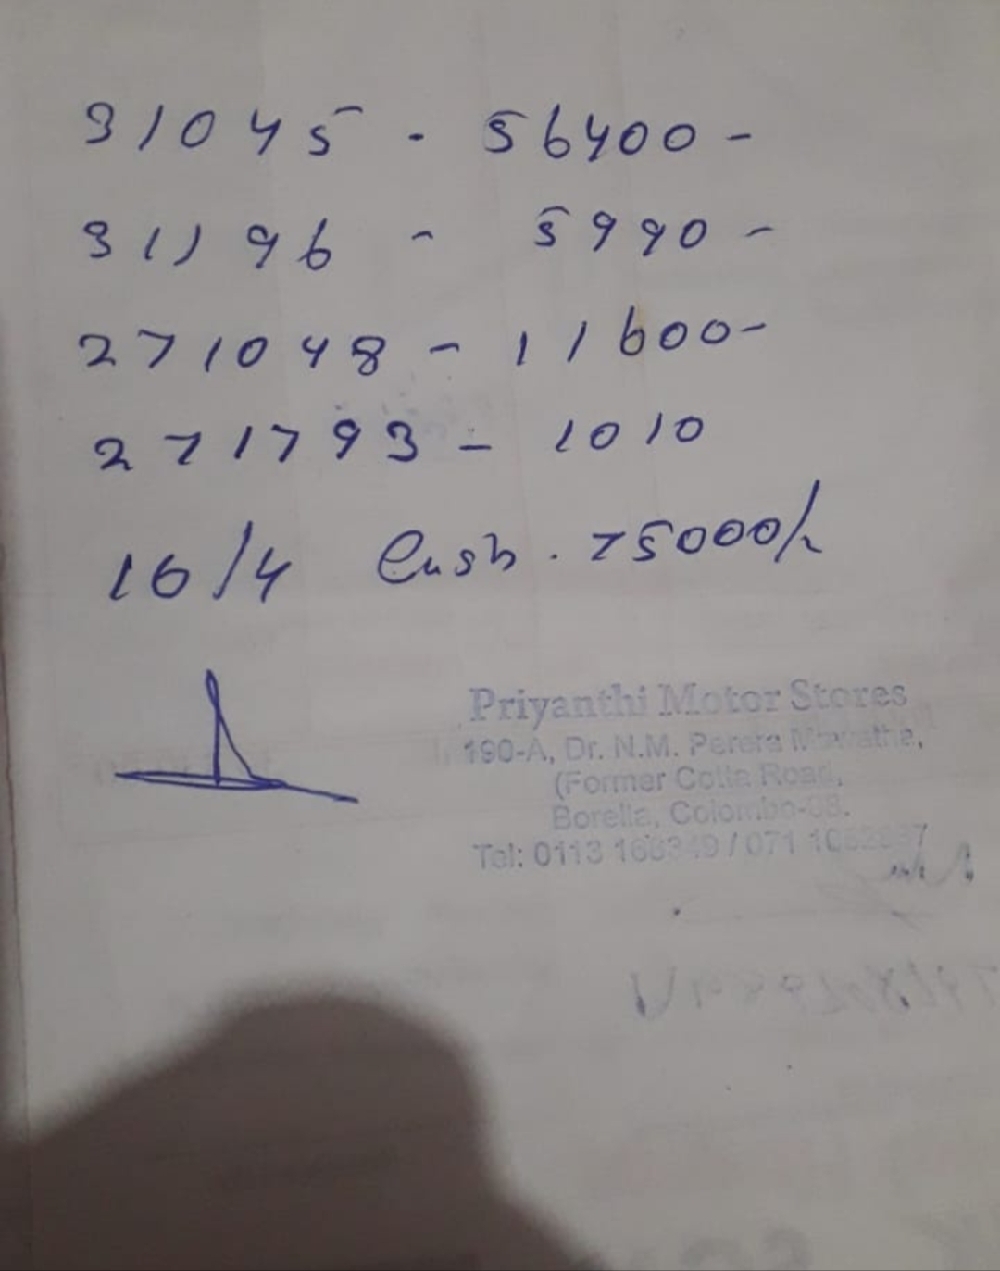 31045 - 56400-
31196 - 5990-
271048 - 11600-
271793 - 1010
16/4 Cash. 75000/-
Priyanthi Motor Stores
190-A, Dr. N.M. Perera Mawatha,
(Former Cotta Road,
Borella, Colombo-08.
Tel: 0113 / 071